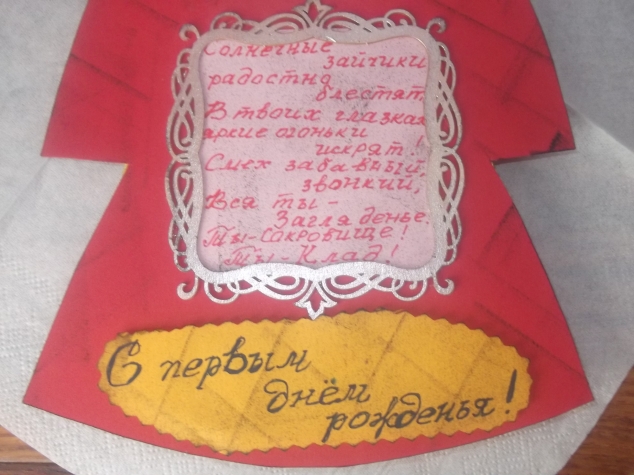 Солнечные
зайчики
радостно
блестят
В твоих глазках
яркие огоньки
искрят!
Смех забавный,
звонкий,
Вся ты -
Загляденье.
Ты - Сокровище!
Ты - Клад!
С первым
днём
рожденья!